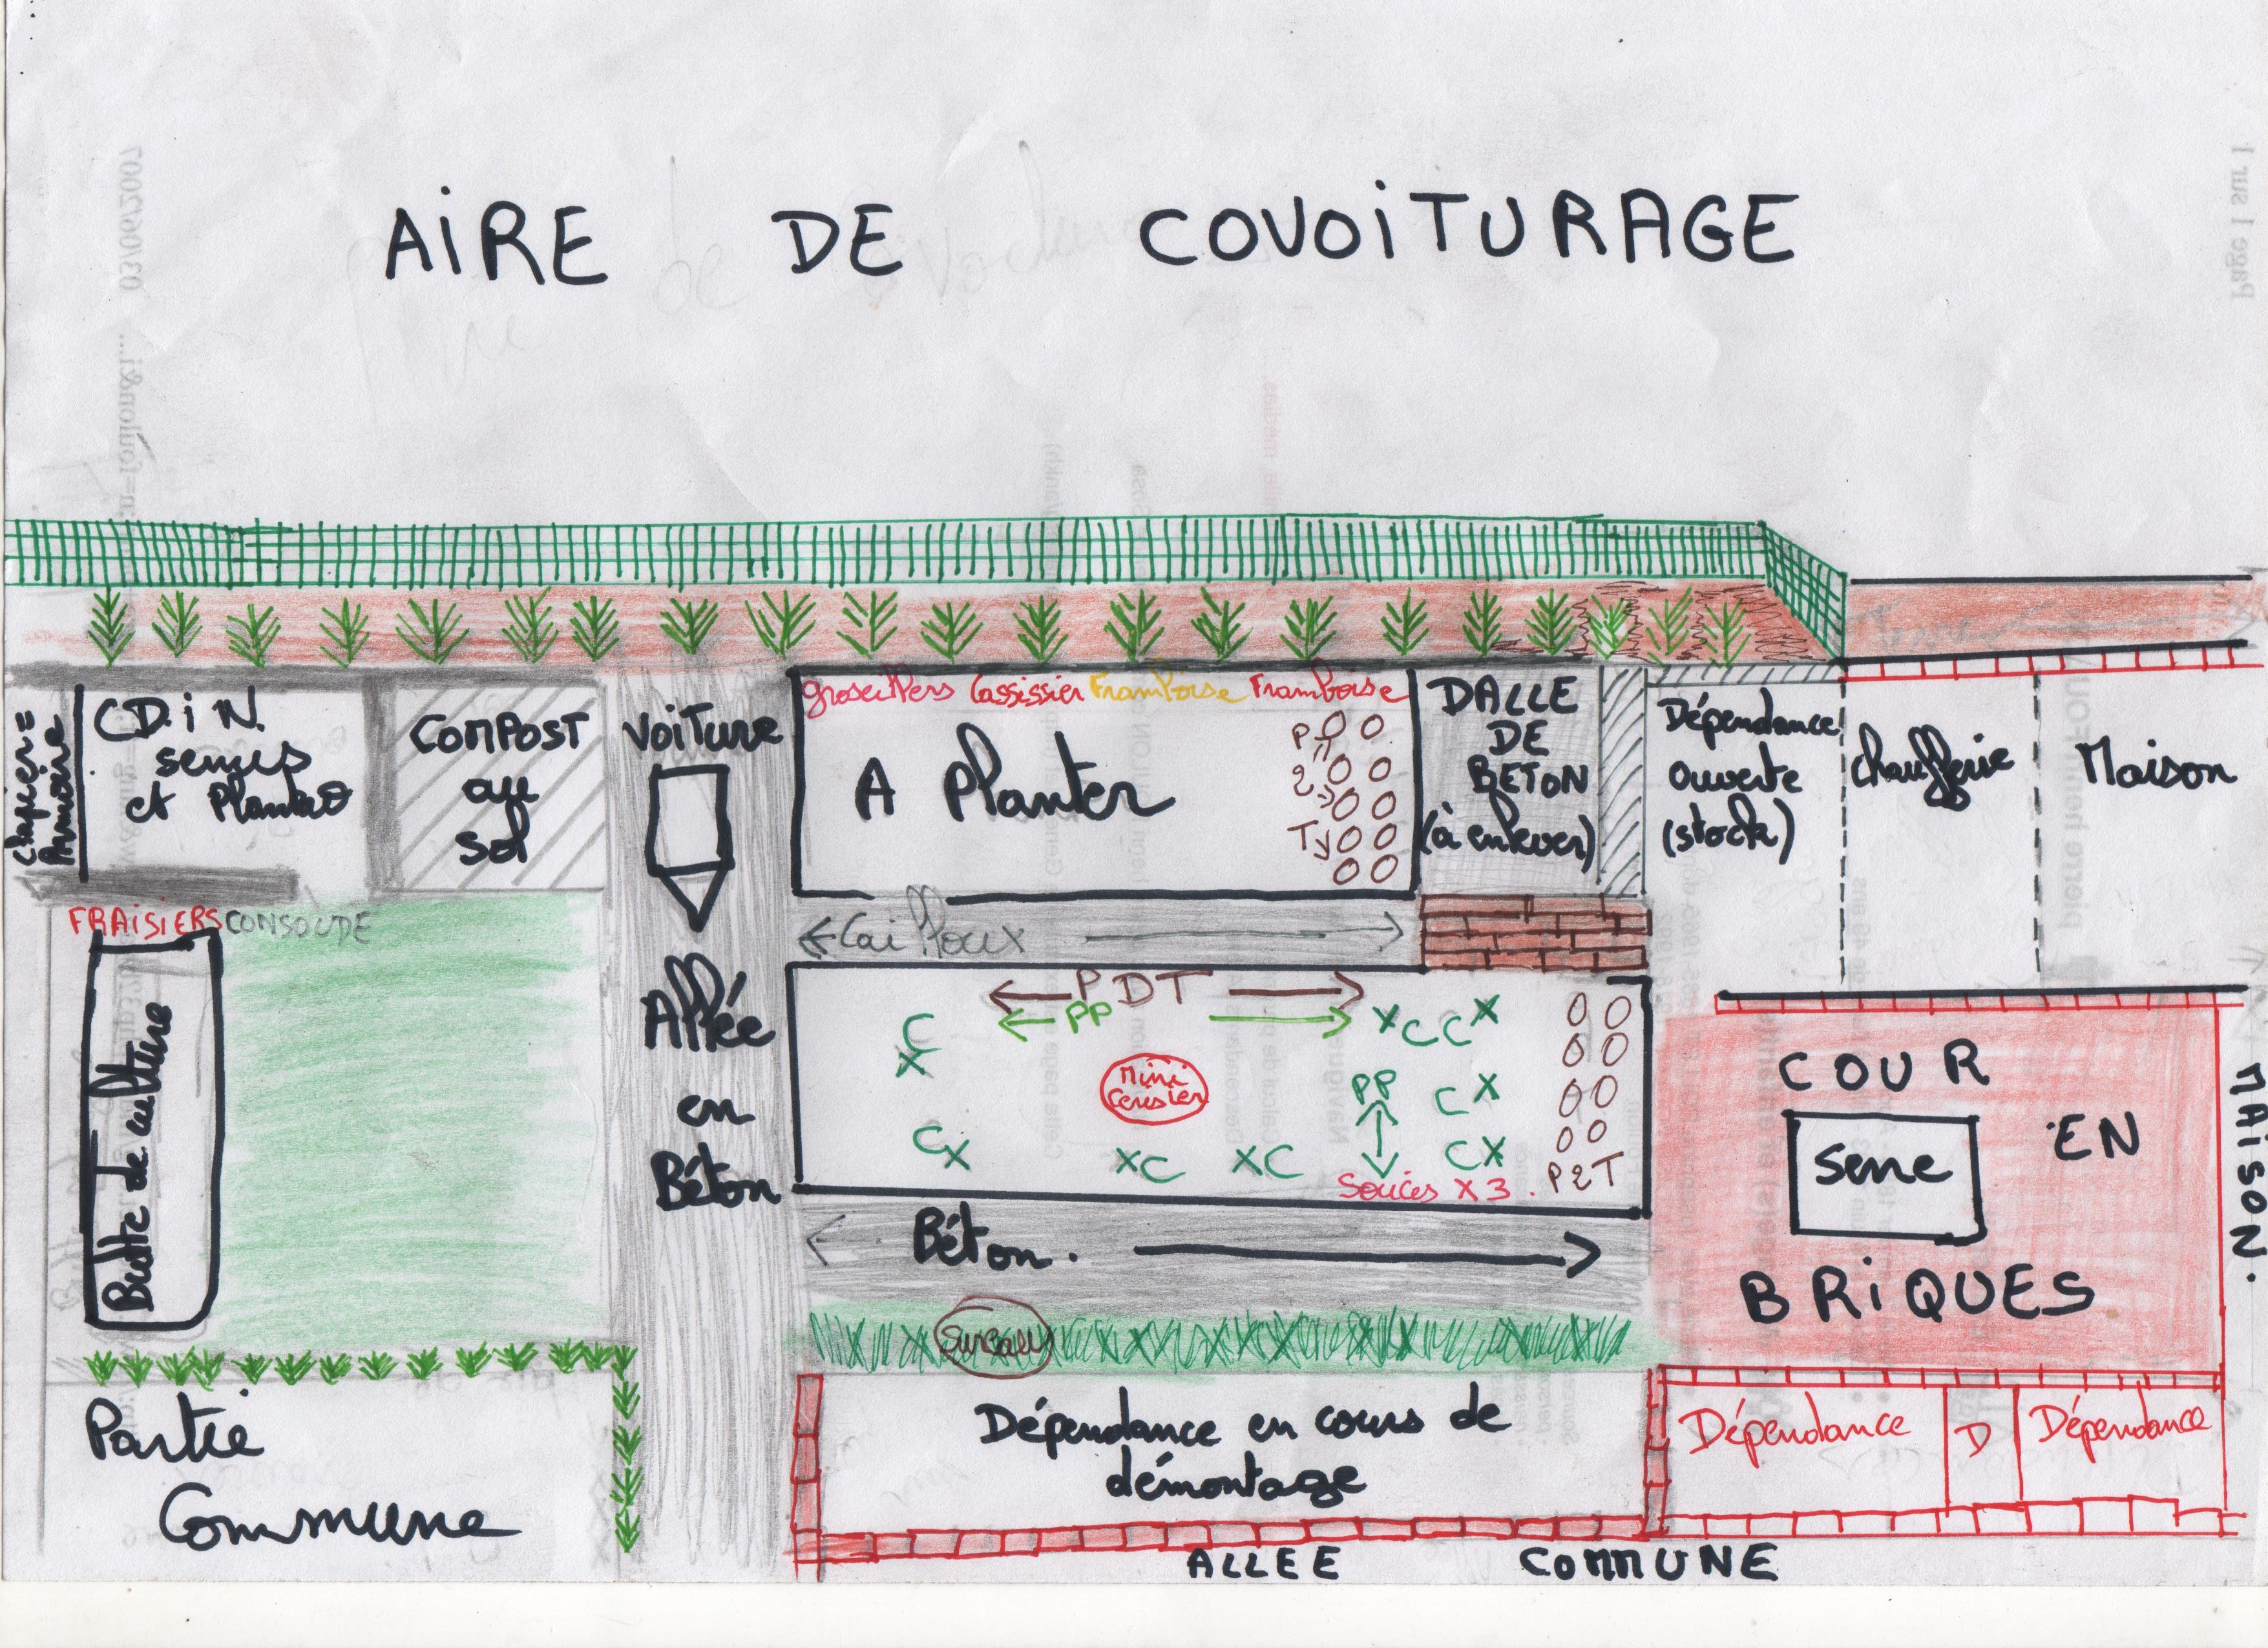 AiRE DE COVOiTURAGE
03/06/2007
Page 1 sur 1
Clapier =
Armoire
C D.i N.
semis
et Plantao
COMPOST
au
sol
VOiTURE
groseillers Cassissier Framboise Framboise
A Planter
P
2
T
DALLE
DE
BETON
(à enlever)
Dépendance
ouverte
(stock)
Chaufferie
Maison
FRAISIERS CONSOUDE
Butte de culture
Allée
en
Béton
Cailloux
PDT
PP
C X
X C C X
Mini
Cerisier
PP
C X
C X
X C
X C
C X
Soucis X 3.
P 2 T
Béton.
Sureau
COUR
EN
Serre
BRiQUES
MAiSON.
Partie
Commune
Dépendance en cours de
démontage
Dépendance
D
Dépendance
ALLEE COMMUNE